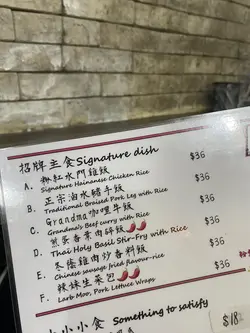 招牌主食Signature dish
A. 粉紅水門雞飯 $36
Signature Hainanese Chicken Rice
B. 正宗滷水豬手飯 $36
Traditional Braised Pork Leg with Rice
C. Grandma咖喱牛飯 $36
Grandma's Beef curry with Rice
D. 煎蛋香葉肉碎飯 $36
Thai Holy Basil Stir-Fry with Rice
E. 冬陰雞肉炒香料飯 $36
Chinese sausage fried flavour-rice
F. 辣妹生菜包 $36
Larb Moo, Pork Lettuce Wraps
小小小食 Something to satisfy
$18